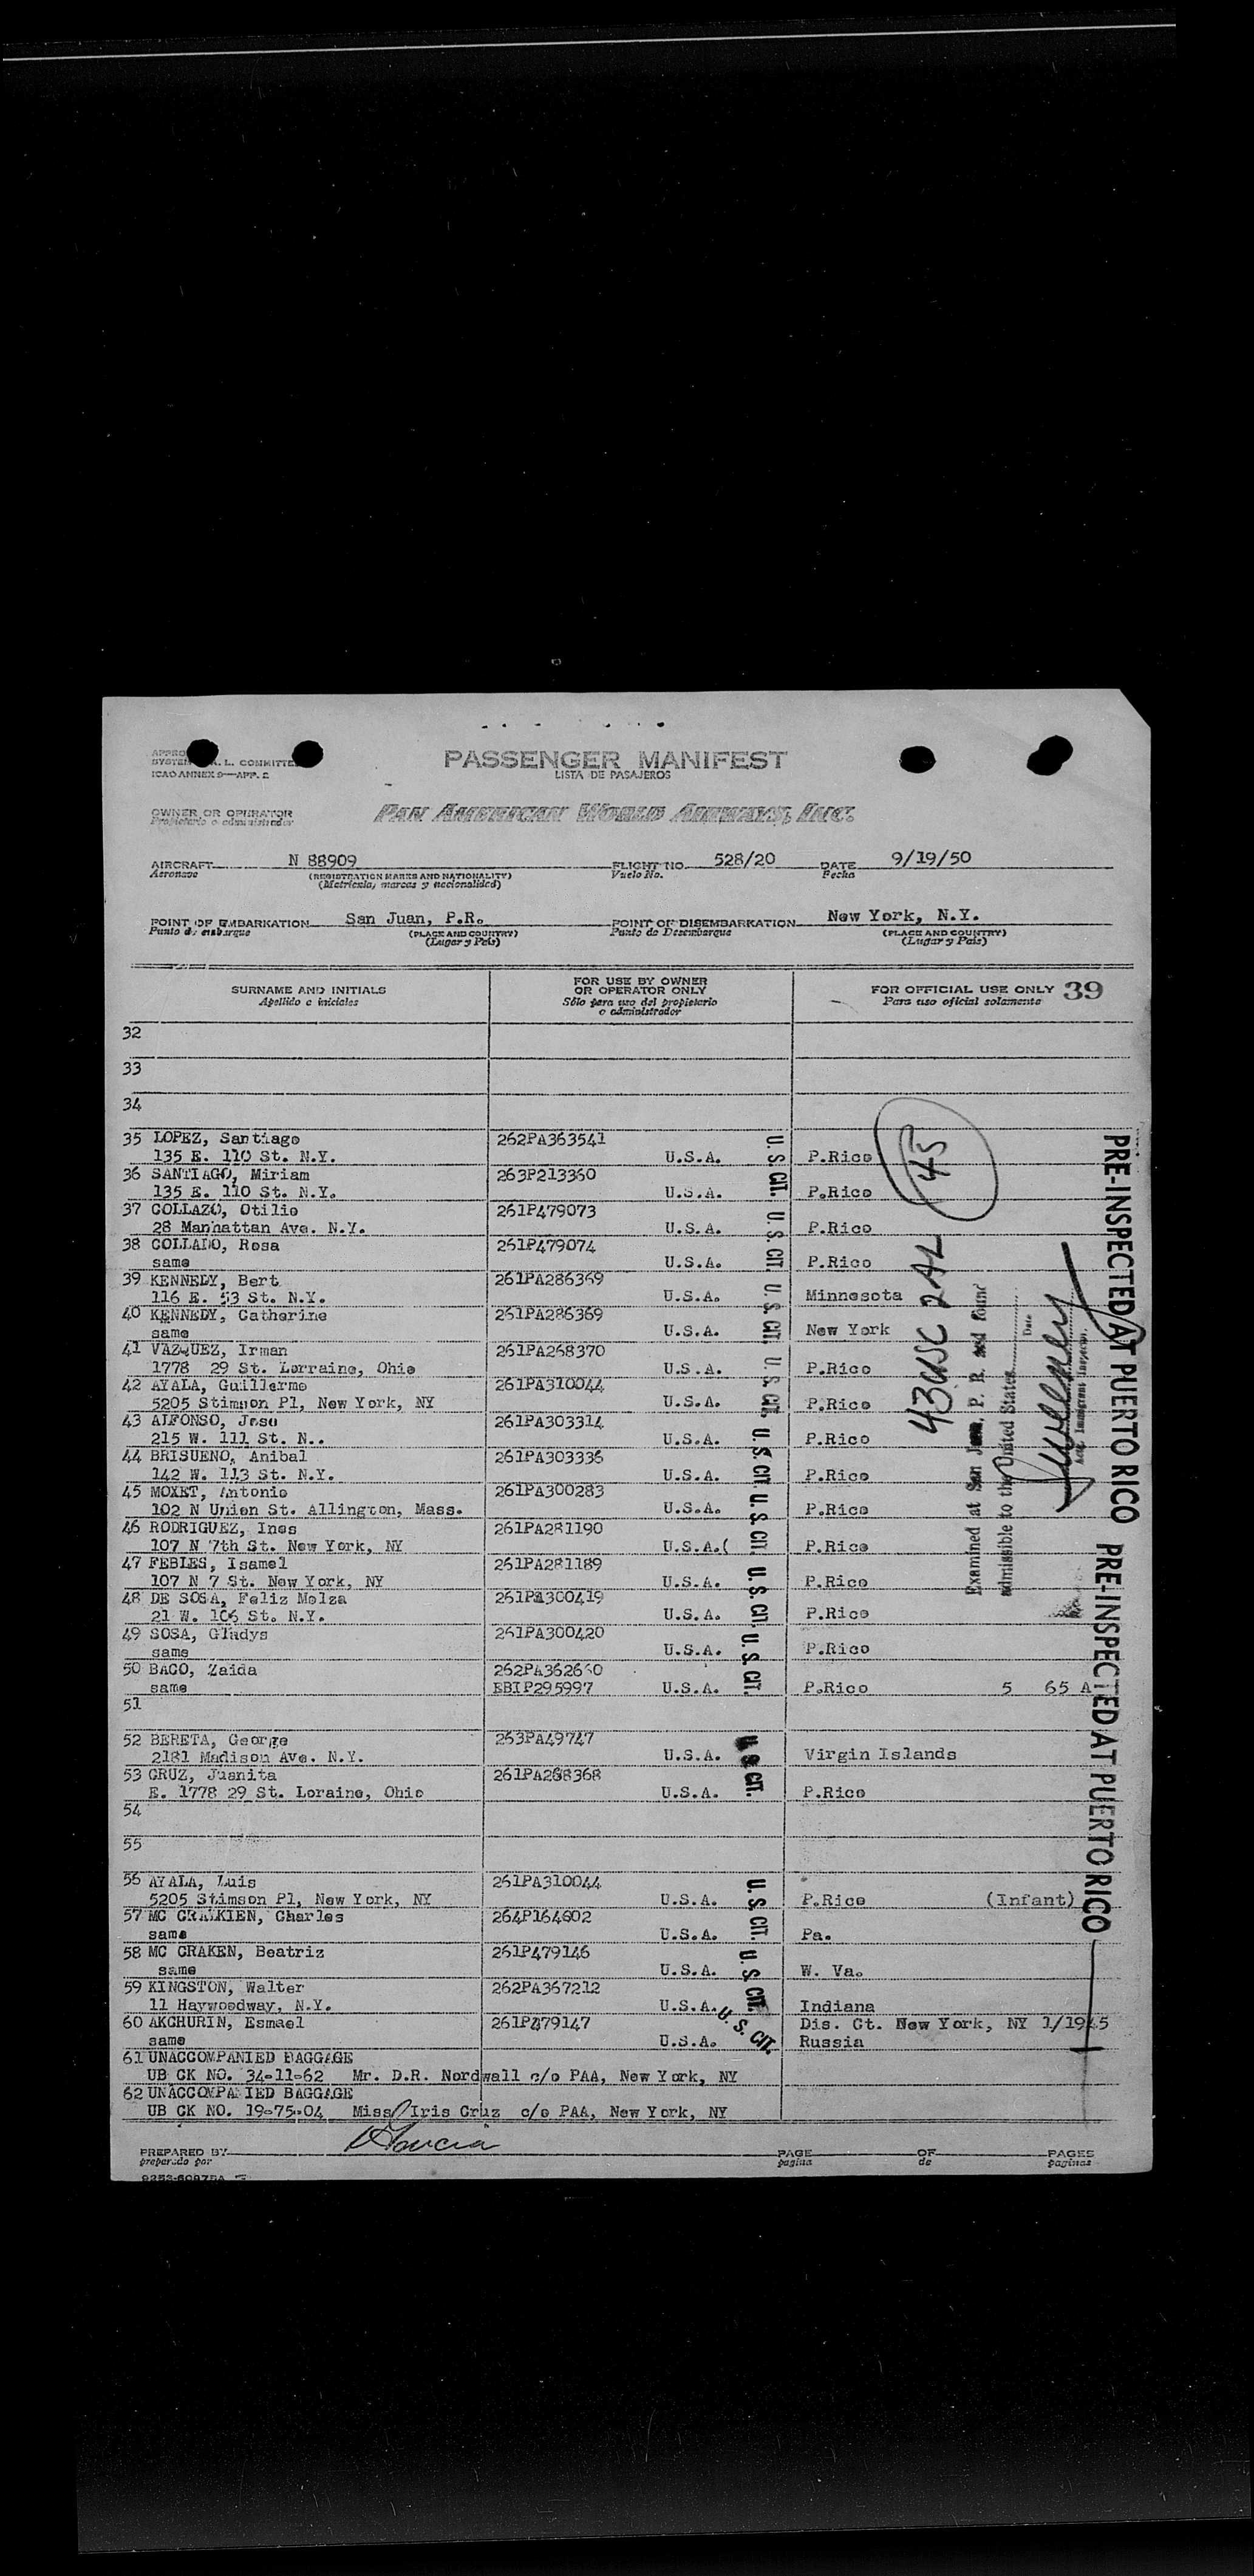 PASSENGER MANIFEST
LISTA DE PASAJEROS
ICAO ANNEX 9—APP. 2
OWNER OR OPERATOR
Propietario o administrador
PAN AMERICAN WORLD AIRWAYS, INC.
AIRCRAFT N 88909 FLIGHT NO. 528/20 DATE 9/19/50
Aeronave (REGISTRATION MARKS AND NATIONALITY) Vuelo No. Fecha
(Matrícula, marcas y nacionalidad)
POINT OF EMBARKATION San Juan, P.R. POINT OF DISEMBARKATION New York, N.Y.
Punto de embarque (PLACE AND COUNTRY) Punto de Desembarque (PLACE AND COUNTRY)
(Lugar y País) (Lugar y País)
SURNAME AND INITIALS FOR USE BY OWNER OR OPERATOR ONLY FOR OFFICIAL USE ONLY 39
Apellido e iniciales Sólo para uso del propietario o administrador Para uso oficial solamente
32
33
34
35 LOPEZ, Santiago 262PA363541
135 E. 110 St. N.Y. U.S.A. P.Rico
36 SANTIAGO, Miriam 263P213360
135 E. 110 St. N.Y. U.S.A. P.Rico
37 COLLAZO, Otilio 261P479073
28 Manhattan Ave. N.Y. U.S.A. P.Rico
38 COLLADO, Rosa 261P479074
same U.S.A. P.Rico
39 KENNEDY, Bert 261PA286369
116 E. 53 St. N.Y. U.S.A. Minnesota
40 KENNEDY, Catherine 261PA286369
same U.S.A. New York
41 VAZQUEZ, Irman 261PA268370
1778 29 St. Lorraine, Ohio U.S.A. P.Rico
42 AYALA, Guillermo 261PA310044
5205 Stimson Pl, New York, NY U.S.A. P.Rico
43 ALFONSO, Jose 261PA303314
215 W. 111 St. N.. U.S.A. P.Rico
44 BRISUENO, Anibal 261PA303336
142 W. 113 St. N.Y. U.S.A. P.Rico
45 MOXET, Antonio 261PA300283
102 N Union St. Allington, Mass. U.S.A. P.Rico
46 RODRIGUEZ, Ines 261PA281190
107 N 7th St. New York, NY U.S.A.( P.Rico
47 FEBLES, Isamel 261PA281189
107 N 7 St. New York, NY U.S.A. P.Rico
48 DE SOSA, Feliz Melza 261PA300419
21 W. 106 St. N.Y. U.S.A. P.Rico
49 SOSA, Gladys 261PA300420
same U.S.A. P.Rico
50 BAGO, Zaida 262PA362660
same EBIP295997 U.S.A. P.Rico 5 65 A
51
52 BERETA, George 263PA49747
2181 Madison Ave. N.Y. U.S.A. Virgin Islands
53 CRUZ, Juanita 261PA268368
E. 1778 29 St. Loraine, Ohio U.S.A. P.Rico
54
55
56 AYALA, Luis 261PA310044
5205 Stimson Pl, New York, NY U.S.A. P.Rico (Infant)
57 MC CRAKIEN, Charles 264P164602
same U.S.A. Pa.
58 MC CRAKEN, Beatriz 261P479146
same U.S.A. W. Va.
59 KINGSTON, Walter 262PA367212
11 Haywoodway, N.Y. U.S.A. Indiana
60 AKCHURIN, Esmael 261P479147 Dis. Ct. New York, NY 1/1945
same U.S.A. Russia
61 UNACCOMPANIED BAGGAGE
UB CK NO. 34-11-62 Mr. D.R. Nordwall c/o PAA, New York, NY
62 UNACCOMPANIED BAGGAGE
UB CK NO. 19-75-04 Miss Iris Cruz c/o PAA, New York, NY
PREPARED BY PAGE OF PAGES
preparado por página de páginas
U.S. CIT. U.S. CIT. U.S. CIT. U.S. CIT. U.S. CIT. U.S. CIT. U.S. CIT. U.S. CIT.
U.S. CIT.
U.S. CIT. U.S. CIT. U.S. CIT.
45
43 USC 2 AL
Examined at San Juan, P. R. and found
admissible to the United States
Date
Immigrant Inspector.
PRE-INSPECTED AT PUERTO RICO PRE-INSPECTED AT PUERTO RICO